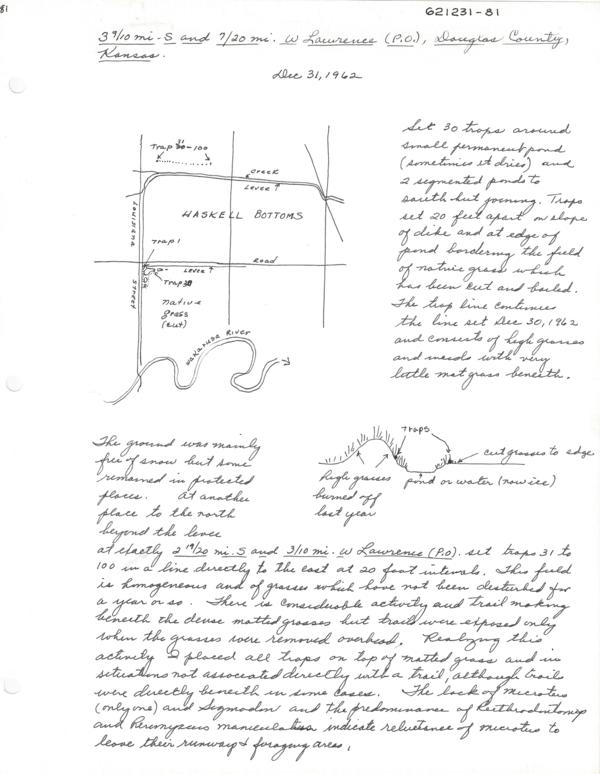 81
G21231-81
3 9/10 mi - S and 7/20 mi. W Lawrence (P.O.), Douglas County,
Kansas.
Dec 31, 1962
Trap 31-100
creek
Levee ↑
HASKELL BOTTOMS
Louisiana
Trap 1
Road
Levee ↑
Trap 30
Street
native
grass
(cut)
Wakarusa River
Set 30 traps around
small permanent pond
(sometimes it dries) and
2 segmented ponds to
south but joining. Traps
set 20 feet apart on slope
of dike and at edge of
pond bordering the field
of native grass which
has been cut and bailed.
The trap line continues
the line set Dec 30, 1962
and consists of high grasses
and weeds with very
little mat grass beneath.
Traps
cut grasses to edge
high grasses
burned off
last year
pond or water (now ice)
The ground was mainly
free of snow but some
remained in protected
places. At another
place to the north
beyond the levee
at exactly 2 19/20 mi. S and 3/10 mi. W Lawrence (P.O). set traps 31 to
100 in a line directly to the east at 20 foot intervals. This field
is homogeneous and of grasses which have not been disturbed for
a year or so. There is considerable activity and trail making
beneath the dense matted grasses but trails were exposed only
when the grasses were removed overhead. Realizing this
activity I placed all traps on top of matted grass and in
situations not associated directly with a trail, although trails
were directly beneath in some cases. The lack of microtus
(only one) and Sigmodon and the predominance of Reithrodontomys
and Peromyscus maniculatus indicate reluctance of microtus to
leave their runways & foraging areas.